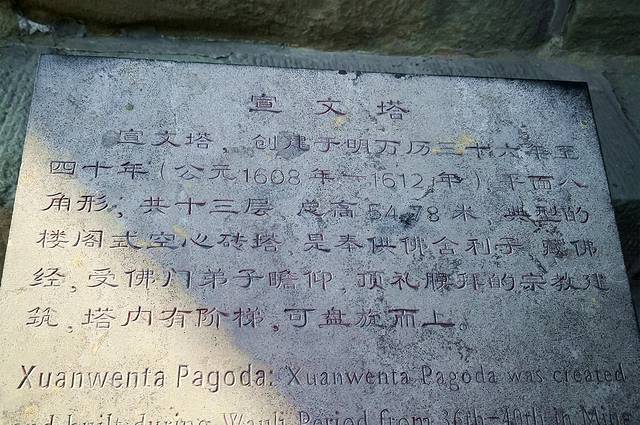 宣文塔
宣文塔，创建于明万历三十六年至
四十年（公元1608年—1612年），平面八
角形，共十三层，总高54.78米，典型的
楼阁式空心砖塔，是奉供佛舍利子、藏佛
经，受佛门弟子瞻仰，顶礼膜拜的宗教建
筑，塔内有阶梯，可盘旋而上。
Xuanwenta Pagoda: Xuanwenta Pagoda was created
and built during Wanli Period from 36th-40th in Ming